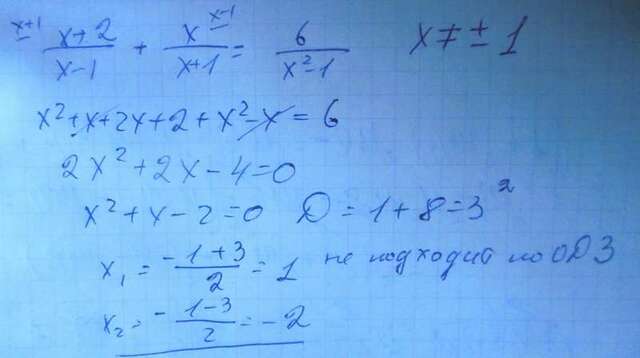 x+1 x+2/x-1 + x/x+1 x-1 = 6/x²-1 x ≠ ± 1
x²+x+2x+2+x²-x=6
2x²+2x-4=0
x²+x-2=0 D=1+8=3²
x₁ = -1+3/2 = 1 не подходит по ОДЗ
x₂ = -1-3/2 = -2